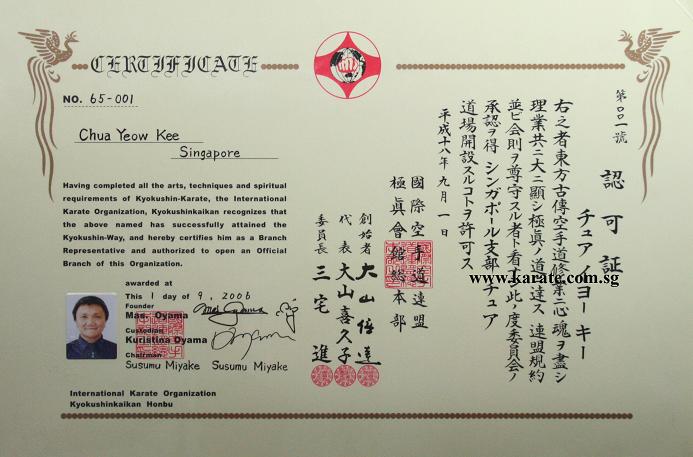 CERTIFICATE
NO. 65-001
Chua Yeow Kee
Singapore
Having completed all the arts, techniques and spiritual
requirements of Kyokushin-Karate, the International
Karate Organization, Kyokushinkaikan recognizes that
the above named has successfully attained the
Kyokushin-Way, and hereby certifies him as a Branch
Representative and authorized to open an Official
Branch of this Organization.
awarded at
This 1 day of 9, 2006
Founder
Mas. Oyama
Mas Oyama
Custodian
Kuristina Oyama
Chairman
Susumu Miyake Susumu Miyake
International Karate Organization
Kyokushinkaikan Honbu
第００一號
認可証
チュア イヨー キー
右之者東方古傳空手道修業ニ心魂ヲ盡シ
理業共ニ大ニ顕シ極真ノ道ニ達ス 連盟規約
並ビ会則ヲ尊守スル者ト看做此度委員会ノ
承認ヲ得 シンガポール支部 チュア
道場開設スルコトヲ許可ス
平成十八年九月一日
國際空手道連盟
極眞會館総本部
創始者 大山倍達
代表 大山喜久子
委員長 三宅 進
www.karate.com.sg